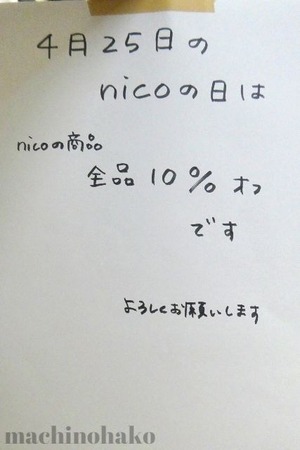 4月25日の
nicoの日は
nicoの商品
全品10%オフ
です
よろしくお願いします
machinohako